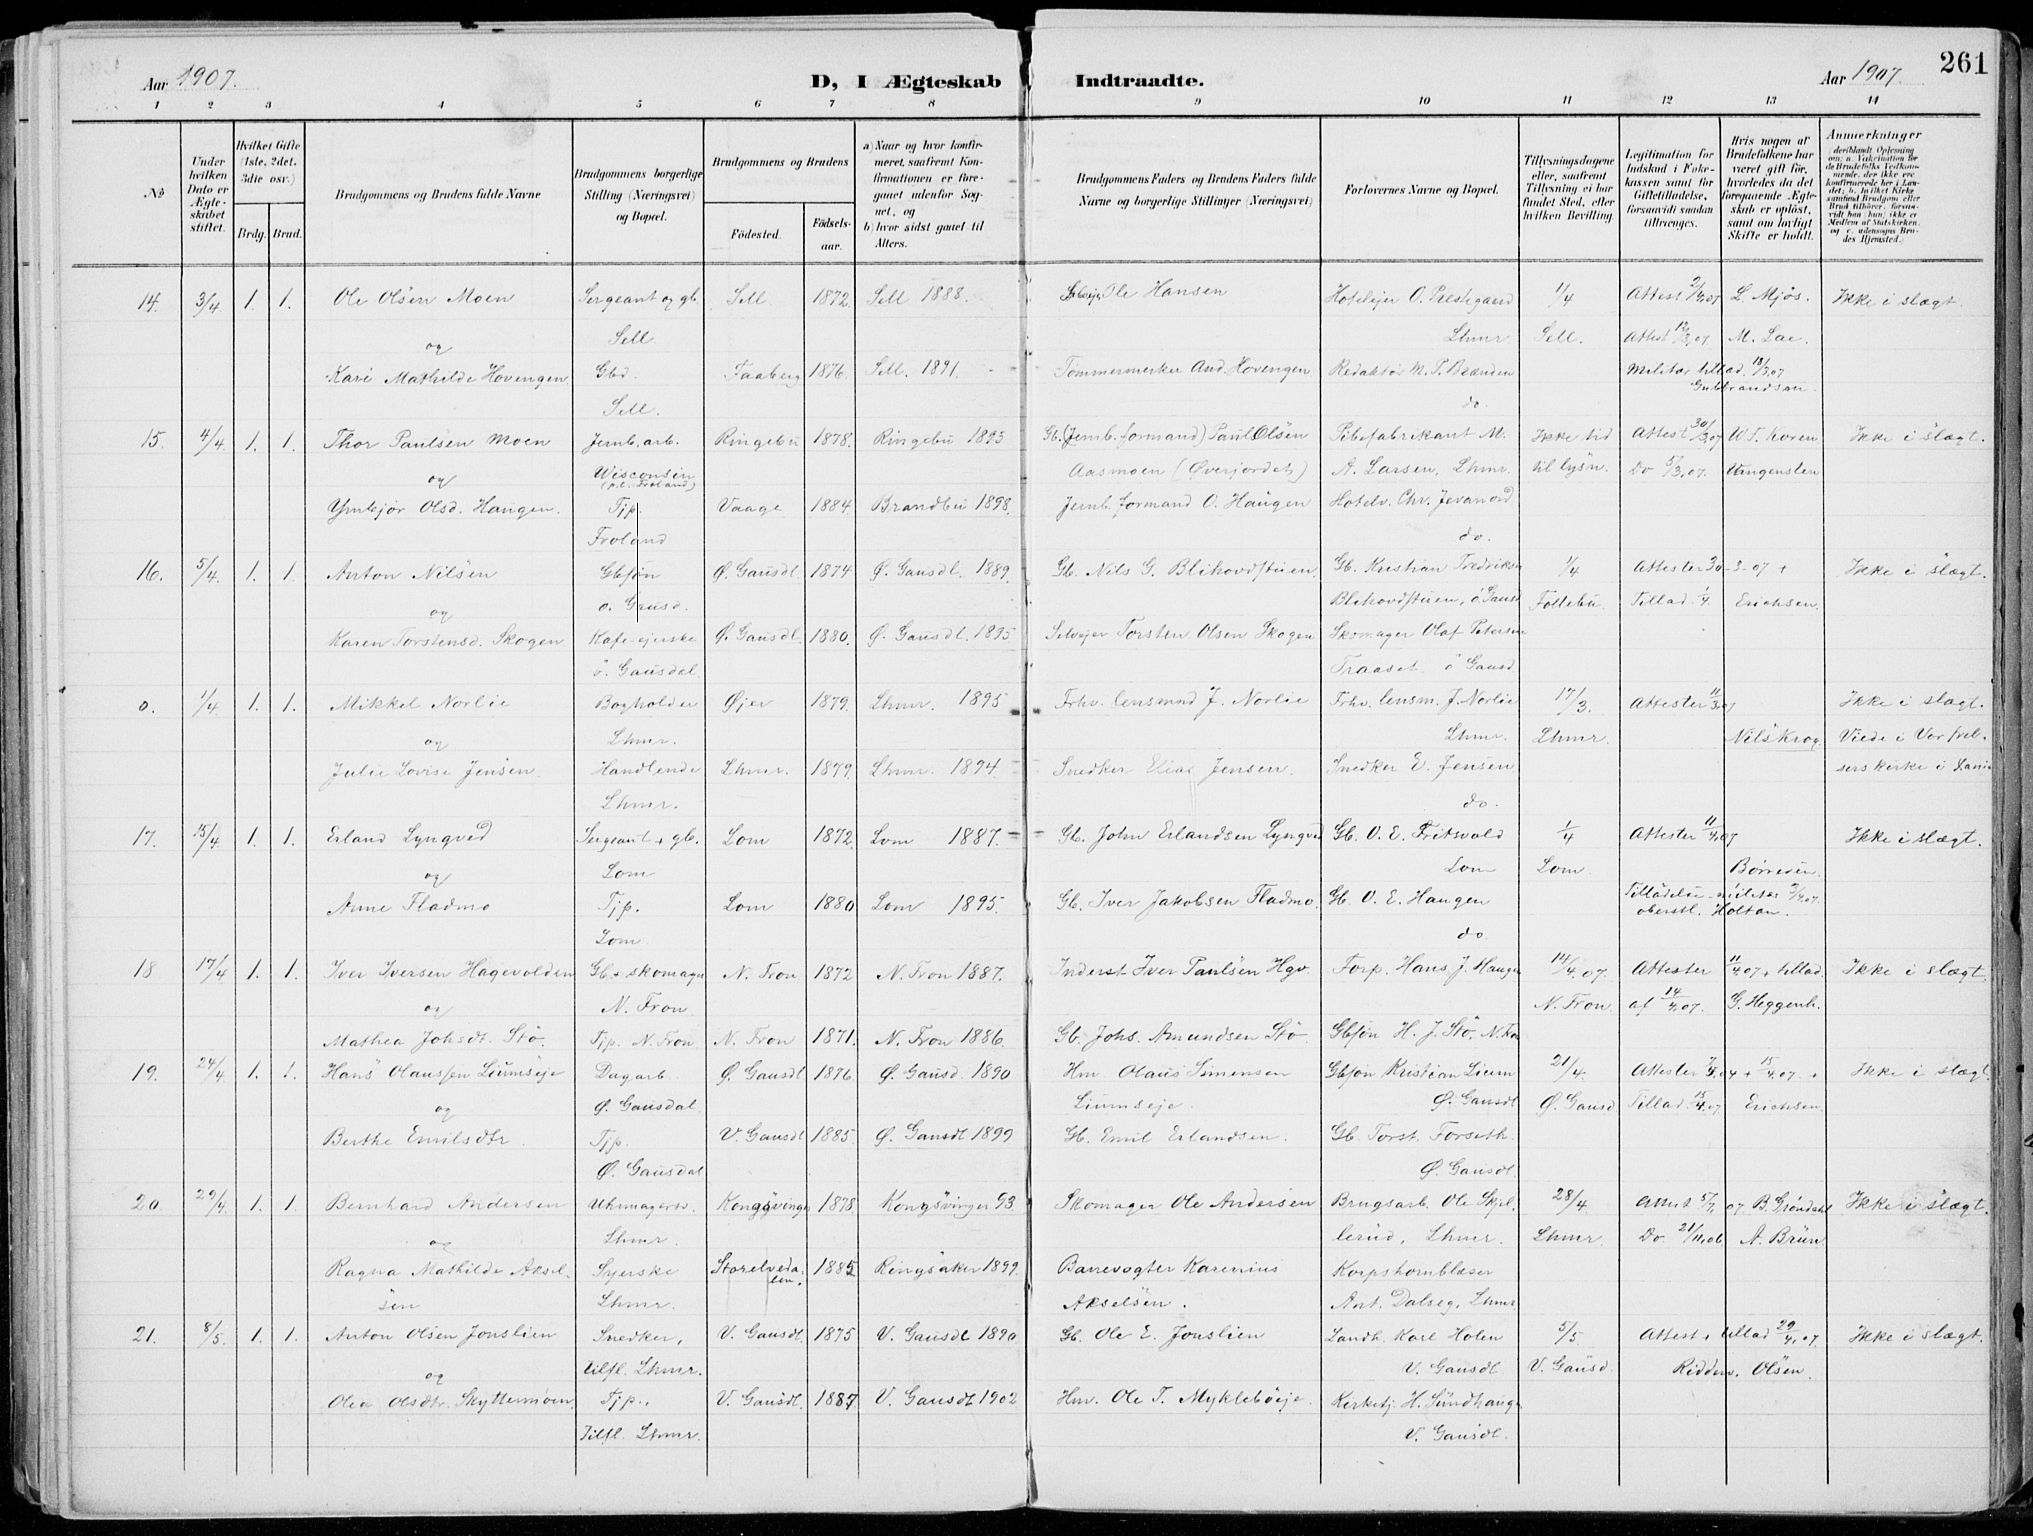 Aar 1907. D, I Ægteskab Indtraadte. Aar 1907. 261
1 2 3 4 5 6 7 8 9 10 11 12 13 14
No
Under hvilken Dato er Ægteskabet stiftet.
Hvilket Gifte (1ste, 2det, 3die osv.)
Brdg. Brud.
Brudgommens og Brudens fulde Navne
Brudgommens borgerlige Stilling (Næringsvei) og Bopæl.
Brudgommens og Brudens
Fødested. Fødsels-aar.
a) Naar og hvor konfirmeret, saafremt Konfirmationen er foregaaet udenfor Sognet, og
b) hvor sidst gaaet til Alters.
Brudgommens Faders og Brudens Faders fulde Navne og borgerlige Stillinger (Næringsvei)
Forlovernes Navne og Bopæl.
Tillysningsdagene eller, saafremt Tillysning ei har fundet Sted, efter hvilken Bevilling.
Legitimation for Indskud i Enkekassen samt for Giftetilladelse, forsaavidt saadan tiltrænges.
Hvis nogen af Brudefolkene har været gift før, hvorledes da det foregaaende Ægteskab er opløst, samt om lovligt Skifte er holdt.
Anmerkninger
14. 3/4 1. 1. Ole Olsen Moen Sergeant og gb. Sell 1872. Sell 1888. Selveier Ole Hansen Hoteleier O. Prestegaard 1/4 Attest 2/4 07 L. Mjøs. Ikke i slægt.
og Sell. Lhmr Sell. Attest 12/3,07 M. Lae.
Kari Mathilde Hovengen Gbd. Faaberg 1876. Sell. 1891. Tømmermerker And. Hovengen Redaktør M. P. Brænden Militær tillad. 13/3,07
Sell. do. Gulbrandsen
15. 4/4 1. 1. Thor Paulsen Moen Jernb. arb. Ringebu 1878. Ringebu 1893 Gb. (Jernb. formand) Paul Olsen Pibefabrikant M. Ikke tid Attest 30/3,07 W. T. Koren Ikke i slægt.
og Wisconsin Aasmoen (Øverjordet) A. Larsen, Lhmr. til lysn. Do 5/3,07. Vangensten
(p.t. Froland)
Ymbjør Olsd. Haugen. Tjp. Vaage 1884. Brandbu 1898. Jernb. formand O. Haugen Hotelv. Chr. Jevanord
Froland do.
16. 5/4. 1. 1. Anton Nilsen Gbsøn Ø. Gausdl 1874 Ø. Gausdl. 1889. Gb. Nils G. Blihovdstuen Gb. Kristian Fredriks 1/4 Attester 30-3-07 + Ikke i slægt.
og ø. Gausd. Blihovdstuen, ø Gausd Follebu. Tillad. 1/4. Erichsen.
Karen Torstensd. Skogen Kafe-eierske Ø. Gausdl. 1880. Ø. Gausdl. 1895 Selveier Torsten Olsen Skogen Skomager Olaf Petersen
ø. Gausdal Traaset ø Gausd
0. 1/4 1. 1. Mikkel Norlie Bogholder Øjer 1879. Lhmr. 1895 Frhv. lensmnd J. Norlie Frhv. lensm. J. Norlie 17/3. Attester 11/3,07 Ikke i slægt.
og Lhmr. Lhmr. Lhmr. Nils Krog. Viede i Vor frel-
Julie Lovise Jensen. Handlende Lhmr. 1879. Lhmr. 1894. Snedker Elias Jensen. Snedker E. Jensen sers kirke i
Lhmr. do.
17. 15/4. 1. 1. Erland Lyngved Sergeant + gb. Lom 1872. Lom 1887. Gb. John Erlandsen Lyngved Gb. O. E. Fritsvold 1/4 Attester 11/4,07 Ikke i slægt.
og Lom Lom Lom. Børresen
Anne Fladmo Tjp. Lom 1880 Lom 1895. Gb. Iver Jakobsen Fladmo. Gb. O. E. Haugen Tilladelse militær 2/4,07.
Lom do oberstl. Holtan.
18 17/4 1. 1. Iver Iversen Hagevolden Gb + skomager N. Fron 1872 N. Fron 1887. Inderst Iver Paulsen Hgv. Forp. Hans J. Haugen 14/4.07. Attester 11/4.07 + tillad. Ikke i slægt.
og N. Fron N. Fron. af 14/4,07. G. Heggenh.
Mathea Johsdt. Stø. Tjp. N. Fron N. Fron 1871. N. Fron 1886. Gb. Johs. Amundsen Stø Gbsøn H. J. Stø. N. Fron
19. 24/4 1. 1. Hans Olaussen Liumseie Dagarb Ø. Gausdl 1876 Ø. Gausd. 1890 Hm. Olaus Simensen Gbsøn Kristian Lium 21/4. Attester + 15/4.07. + Ikke i slægt.
og Ø. Gausdal. Liumseje. Ø. Gausdl Ø. Gausd Tillad. 15/4.07 Erichsen.
Berthe Emilsdtr. Tjp. V. Gausdl 1885. Ø. Gausdl 1899 Gb. Emil Erlandsen. Gb. Torst. Forseth.
Ø. Gausdal Ø. Gausdl
20 29/4. 1. 1. Bernhard Andersen Uhrmagersv. Kongsvinger 1878. Kongsvinger 93. Skomager Ole Andersen Brugsarb. Ole Skjel- 28/4. Attest B. Grøndahl Ikke i slægt.
og Lhmr. lerud, Lhmr. Lhmr. Do. 21/11,06 A. Brun
Ragna Mathilde Aksel- Syerske Storelvedalen. 1885 Ringsaker 1899. Banevogter Karenius Korpshornblæser
sen Lhmr. Akselsen. Ant. Dalseg, Lhmr
21. 8/5. 1. 1. Anton Olsen Jonslien Snedker, V. Gausdl. 1875 V. Gausdl 1890 Gb. Ole E. Jonslien Landh. Karl Holen 5/5 Attest + tillad 29/4,07 Ikke i slægt.
og Tilfl. Lhmr. V. Gausdl V. Gausd. Ridderv. Olsen.
Olea Olsdtr. Skyttermoen Tjp., V. Gausdl. 1887 V. Gausdl 1902 Hm. Ole T. Myklebøeje. Kirketj. H. Sundhaugen
Tilfl. Lhmr. V. Gausdl.